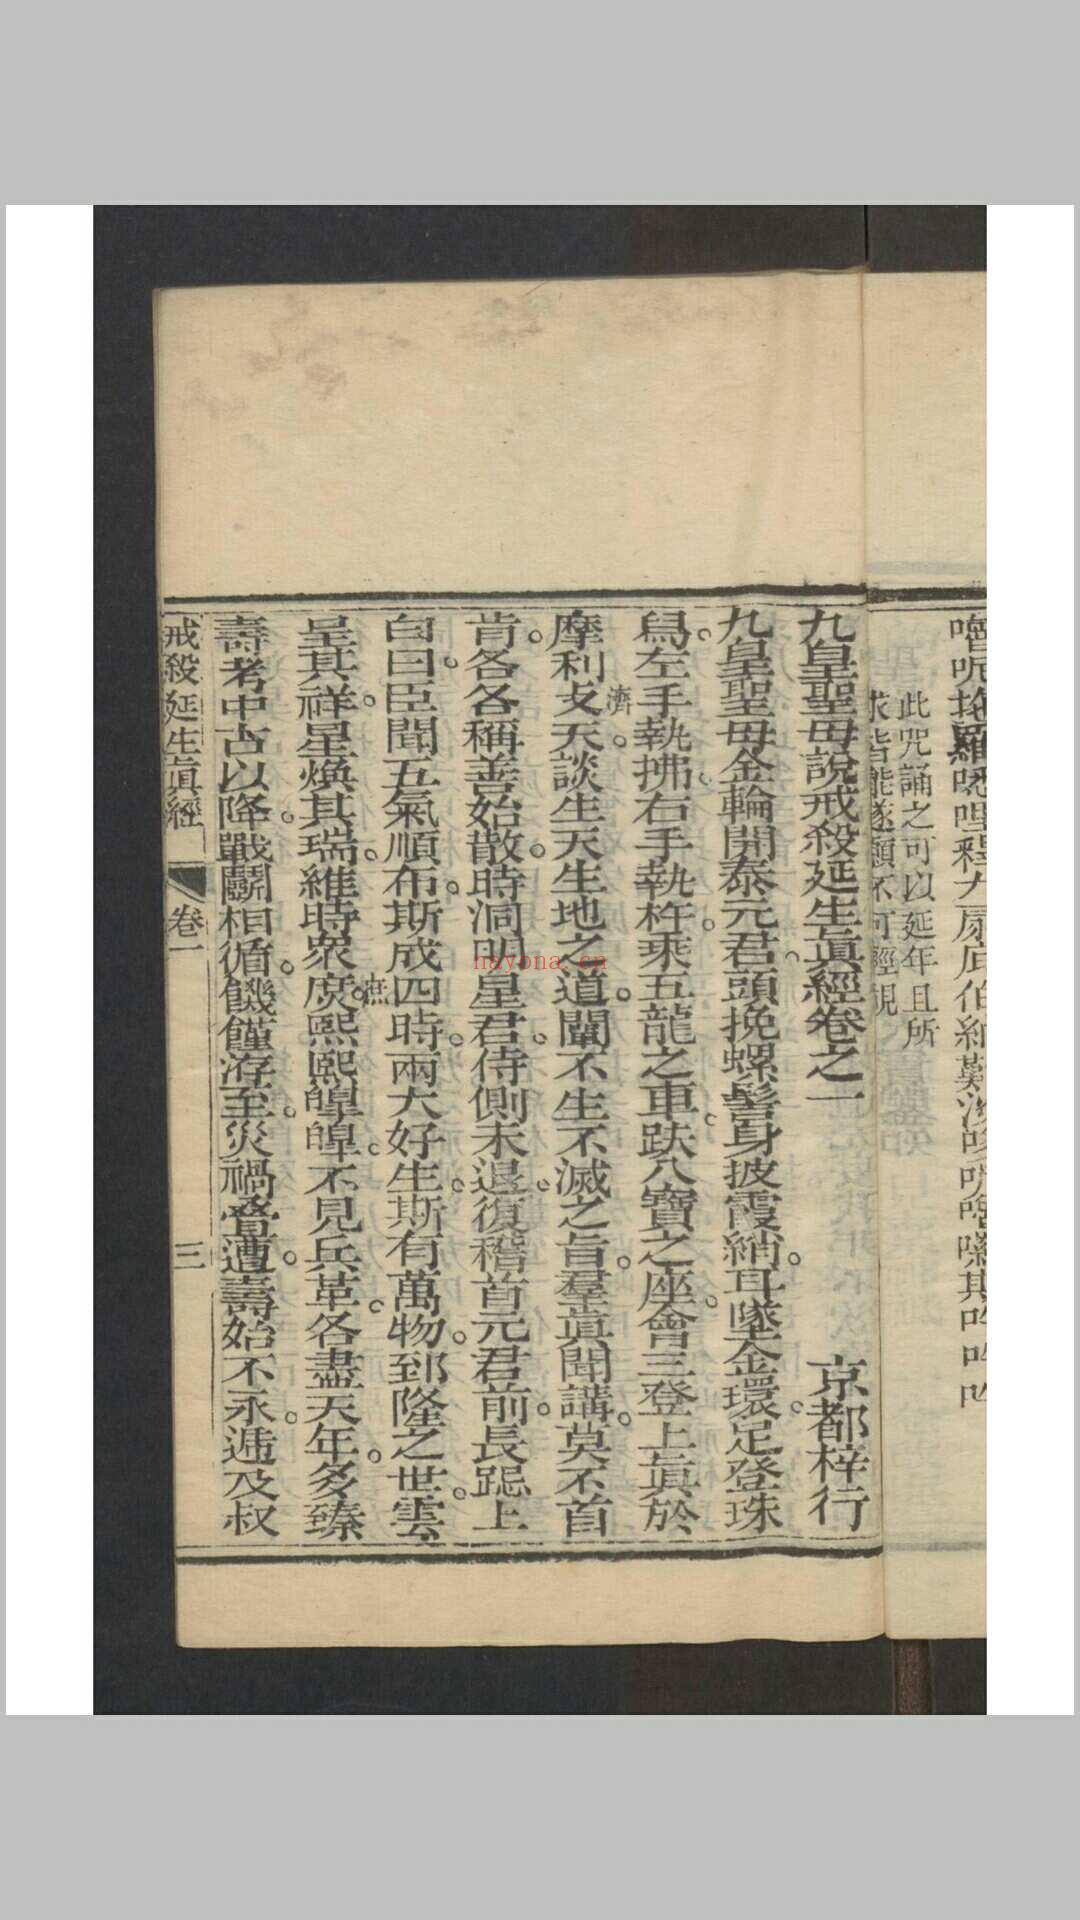 嚕呢拖羅
此咒誦之可以延年且所
求皆能遂願不可輕視
九皇聖母說戒殺延生眞經卷之一
京都梓行
九皇聖母金輪開泰元君。頭挽螺髻身披霞綃。耳墜金環。足登珠
舄。左手執拂。右手執杵。乘五龍之車。趺八寶之座。會三登上眞於
摩利攴天。談生天生地之道。闡不生不滅之旨。羣眞聞講。莫不首
濟
肯。各各稱善始散。時洞明星君。侍側未退。復稽首元君前。長跽上
白曰。臣聞五氣順布。斯成四時。兩大好生。斯有萬物。郅隆之世。雲
呈其祥。星煥其瑞。維時眾庶。熙熙皡皡。不見兵革。各盡天年。多臻
庶
壽考。中古以降。戰鬭相循。饑饉洊至。災禍沓遭。壽始不永。逓及叔
戒殺延生眞經
卷一
三
nayona.cn